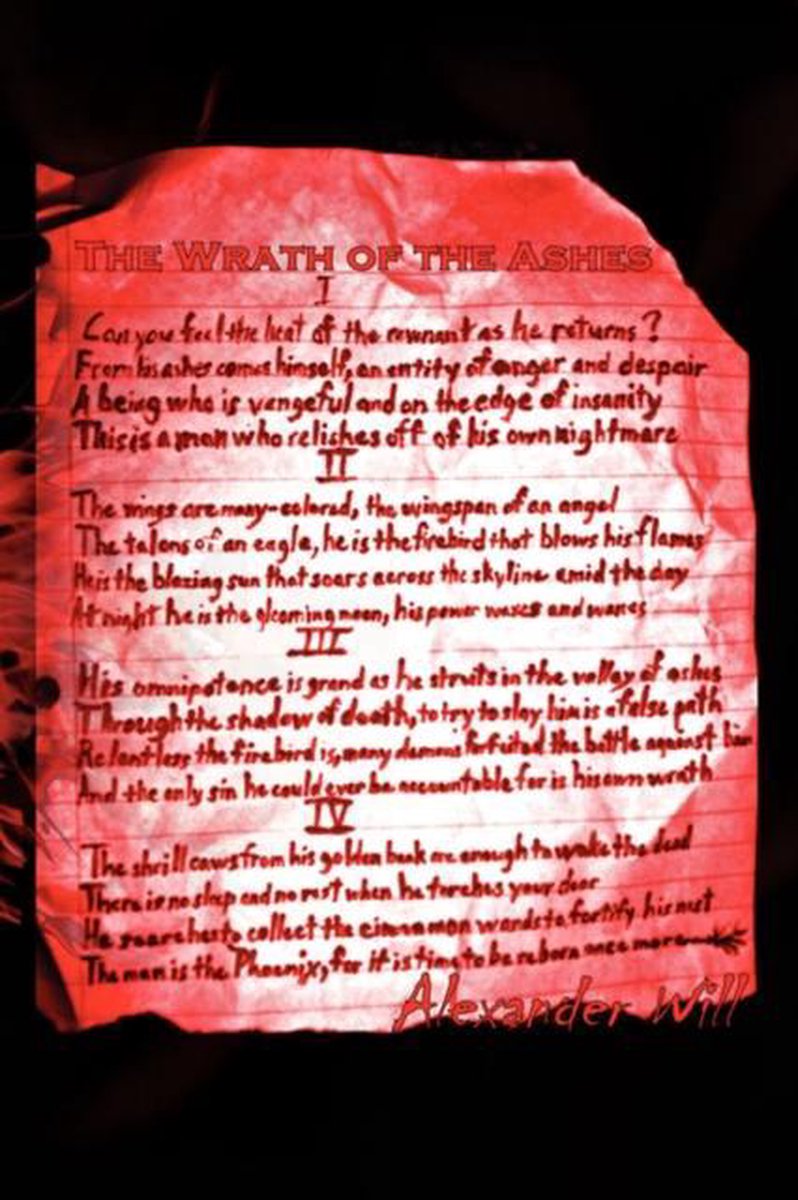 THE WRATH OF THE ASHES
I
Can you feel the heat of the remnant as he returns?
From his ashes comes himself, an entity of anger and despair
A being who is vengeful and on the edge of insanity
This is a man who relishes off of his own nightmare
II
The wings are many-colored, the wingspan of an angel
The talons of an eagle, he is the firebird that blows his flames
He is the blazing sun that soars across the skyline amid the day
At night he is the gleaming moon, his power waxes and wanes
III
His omnipotence is grand as he struts in the valley of ashes
Through the shadow of death, to try to slay him is a false path
Relentless the firebird is, many demons forfeited the battle against him
And the only sin he could ever be accountable for is his own wrath
IV
The shrill caws from his golden beak are enough to wake the dead
There is no sleep and no rest when he torches your door
He searches to collect the cinnamon wands to fortify his nest
The man is the Phoenix, for it is time to be reborn once more
Alexander Will